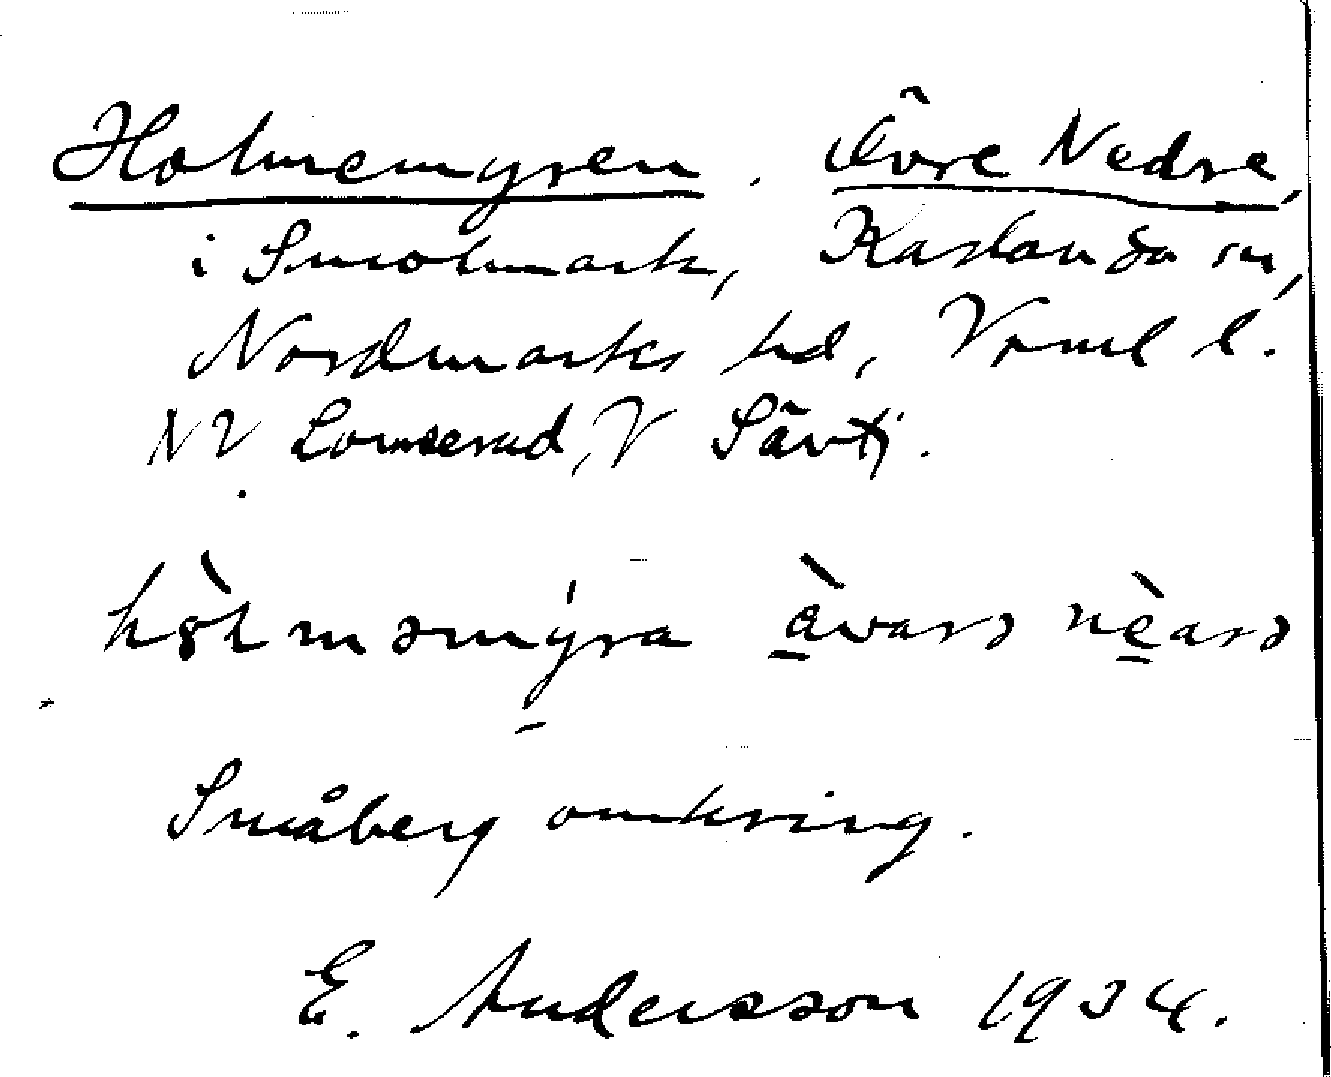 Holmemyren. Övre Nedre,
i Smolmark, Karlanda sn,
Nordmarks hd, Vrml l.
NV Lomserud, V Sävtj.
hòlməmýra àvarə nèarə
Småberg omkring.
E. Andersson 1934.